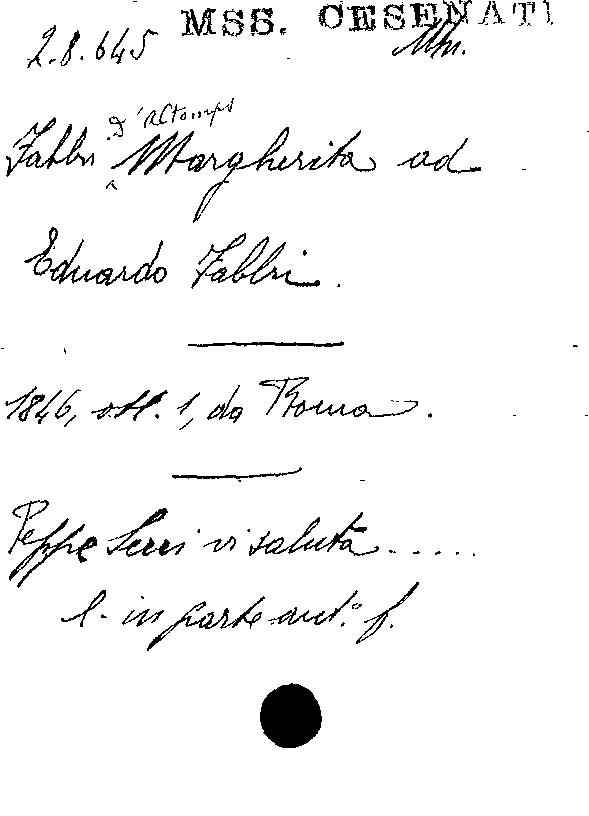 MSS. CESENATI
2.8.645
D'Altemps
Fabbri Margherita ad
Eduardo Fabbri.
1846, ott. 1, da Roma.
Peppe Serri vi saluta.....
l. in parte aut.ª f.